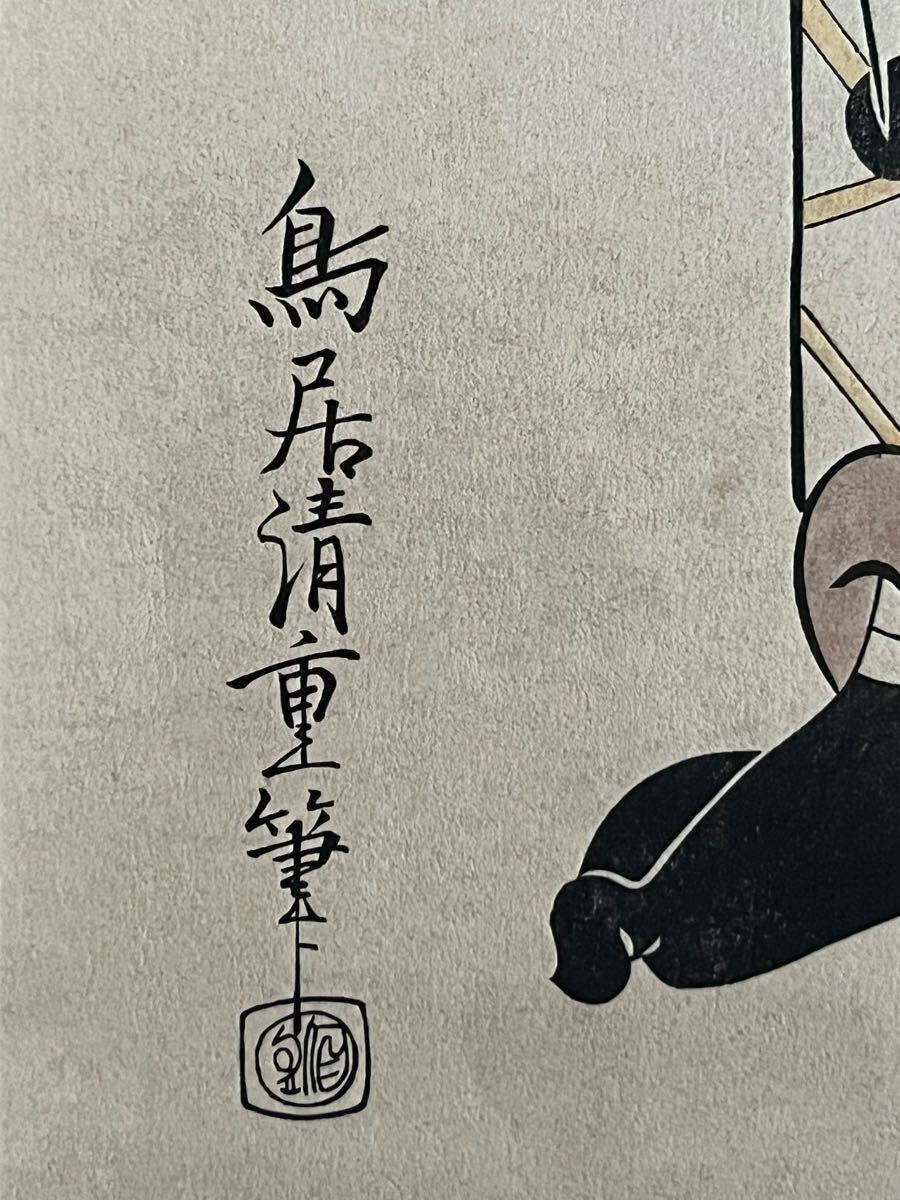 鳥居清重筆